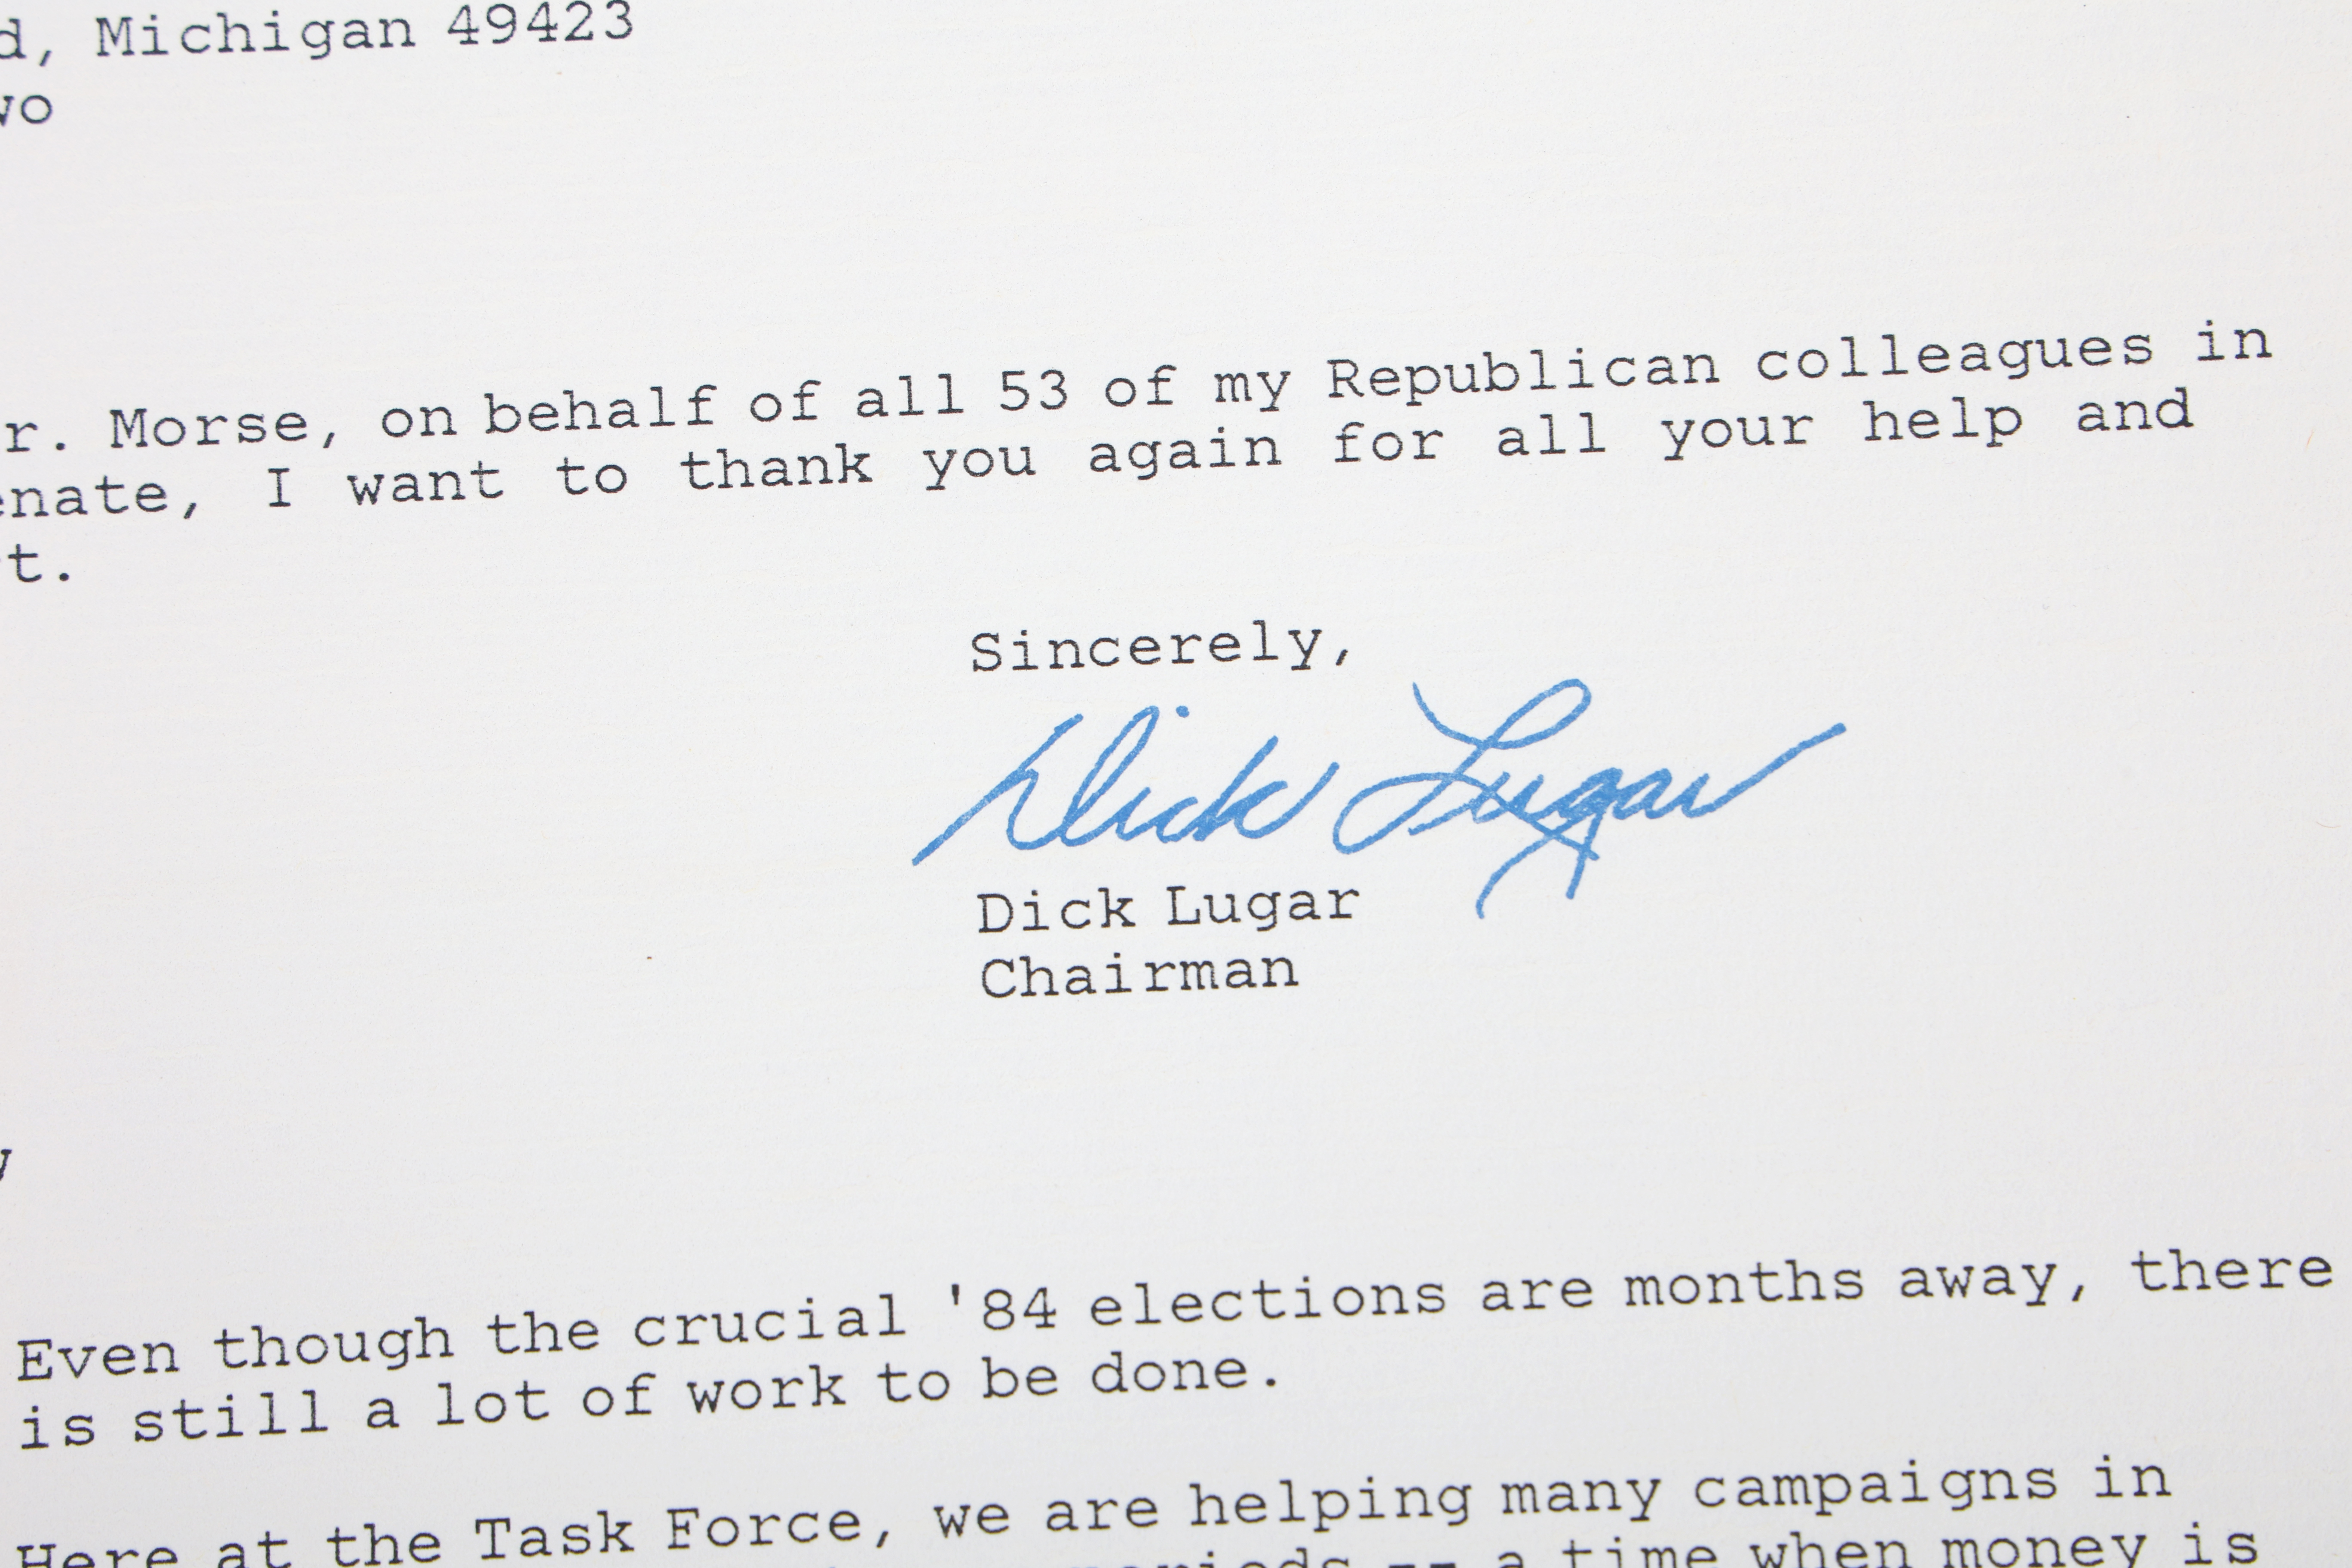 d, Michigan 49423
wo
r. Morse, on behalf of all 53 of my Republican colleagues in
enate, I want to thank you again for all your help and
t.
Sincerely,
Dick Lugar
Dick Lugar
Chairman
Even though the crucial '84 elections are months away, there
is still a lot of work to be done.
Here at the Task Force, we are helping many campaigns in
periods -- a time when money is